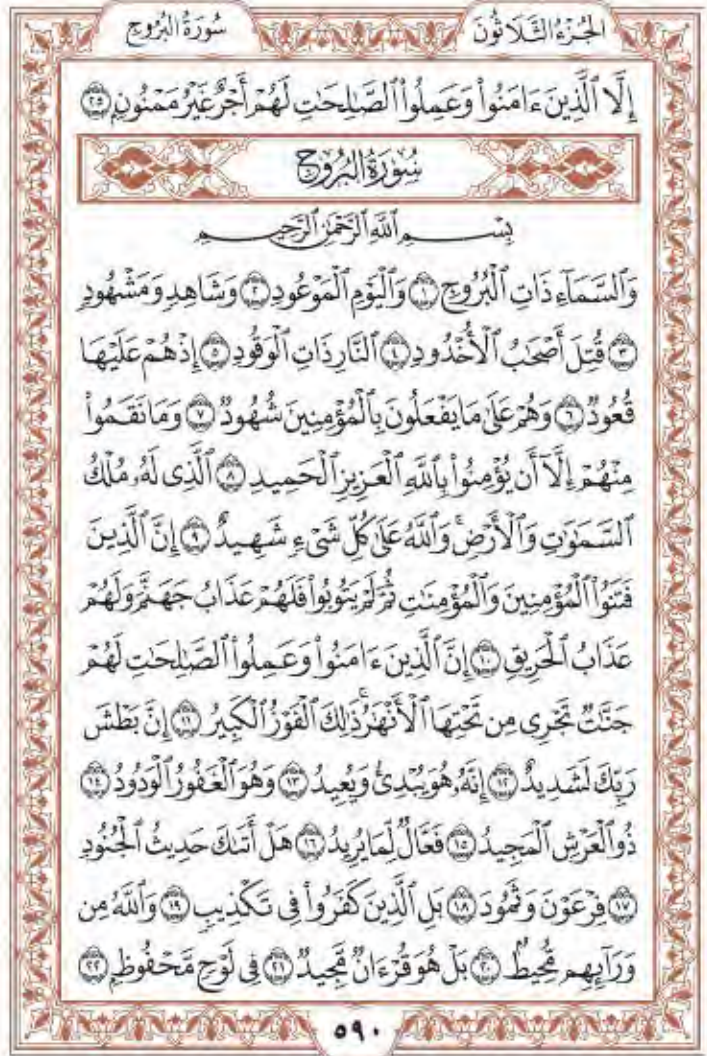 الجُزْءُ الثَّلَاثُونَ سُورَةُ البُرُوجِ
إِلَّا ٱلَّذِينَ ءَامَنُوا۟ وَعَمِلُوا۟ ٱلصَّـٰلِحَـٰتِ لَهُمْ أَجْرٌ غَيْرُ مَمْنُونٍۭ ٢٥
سُورَةُ البُرُوجِ
بِسْمِ ٱللَّهِ ٱلرَّحْمَـٰنِ ٱلرَّحِيمِ
وَٱلسَّمَآءِ ذَاتِ ٱلْبُرُوجِ ١ وَٱلْيَوْمِ ٱلْمَوْعُودِ ٢ وَشَاهِدٍ وَمَشْهُودٍ
٣ قُتِلَ أَصْحَـٰبُ ٱلْأُخْدُودِ ٤ ٱلنَّارِ ذَاتِ ٱلْوَقُودِ ٥ إِذْ هُمْ عَلَيْهَا
قُعُودٌ ٦ وَهُمْ عَلَىٰ مَا يَفْعَلُونَ بِٱلْمُؤْمِنِينَ شُهُودٌ ٧ وَمَا نَقَمُوا۟
مِنْهُمْ إِلَّآ أَن يُؤْمِنُوا۟ بِٱللَّهِ ٱلْعَزِيزِ ٱلْحَمِيدِ ٨ ٱلَّذِى لَهُۥ مُلْكُ
ٱلسَّمَـٰوَٰتِ وَٱلْأَرْضِ ۚ وَٱللَّهُ عَلَىٰ كُلِّ شَىْءٍ شَهِيدٌ ٩ إِنَّ ٱلَّذِينَ
فَتَنُوا۟ ٱلْمُؤْمِنِينَ وَٱلْمُؤْمِنَـٰتِ ثُمَّ لَمْ يَتُوبُوا۟ فَلَهُمْ عَذَابُ جَهَنَّمَ وَلَهُمْ
عَذَابُ ٱلْحَرِيقِ ١٠ إِنَّ ٱلَّذِينَ ءَامَنُوا۟ وَعَمِلُوا۟ ٱلصَّـٰلِحَـٰتِ لَهُمْ
جَنَّـٰتٌ تَجْرِى مِن تَحْتِهَا ٱلْأَنْهَـٰرُ ۚ ذَٰلِكَ ٱلْفَوْزُ ٱلْكَبِيرُ ١١ إِنَّ بَطْشَ
رَبِّكَ لَشَدِيدٌ ١٢ إِنَّهُۥ هُوَ يُبْدِئُ وَيُعِيدُ ١٣ وَهُوَ ٱلْغَفُورُ ٱلْوَدُودُ ١٤
ذُو ٱلْعَرْشِ ٱلْمَجِيدُ ١٥ فَعَّالٌ لِّمَا يُرِيدُ ١٦ هَلْ أَتَىٰكَ حَدِيثُ ٱلْجُنُودِ
١٧ فِرْعَوْنَ وَثَمُودَ ١٨ بَلِ ٱلَّذِينَ كَفَرُوا۟ فِى تَكْذِيبٍ ١٩ وَٱللَّهُ مِن
وَرَآئِهِم مُّحِيطٌۢ ٢٠ بَلْ هُوَ قُرْءَانٌ مَّجِيدٌ ٢١ فِى لَوْحٍ مَّحْفُوظٍۭ ٢٢
٥٩٠